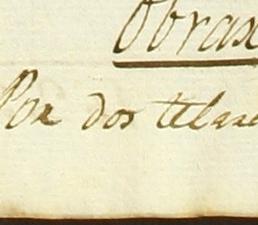 Obras
Por dos telare